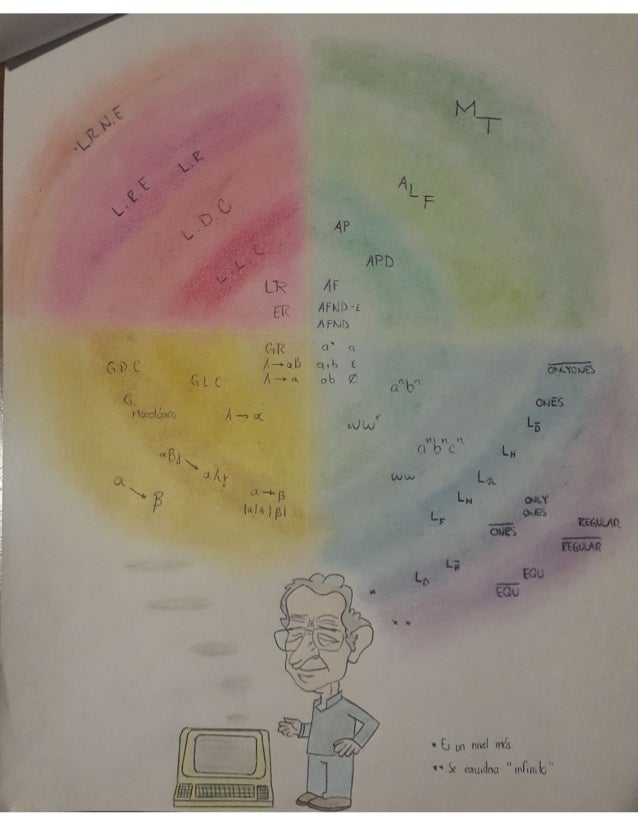 L.R.N.E
L.R.E L.R
L.D.C
L.L.C
LR
ER
MT
ALF
AP
APD
AF
AFND-ε
AFND
GR
A→aB
A→a
G.D.C
G.L.C
G.
Monótónica
A→α
α→β
α→β
|α|≤|β|
a* a
a+b ε
ab ∅
aⁿbⁿ
wwʳ
aⁿbⁿcⁿ
ww
O̅N̅L̅Y̅O̅N̅E̅S̅
ONES
L_D̅
L_H
L_N
L_F
ONLY
ONES
O̅N̅E̅S̅
REGULAR
R̅E̅G̅U̅L̅A̅R̅
L_H̅
L_D
EQU
E̅Q̅U̅
*
**
* Es un nivel más.
** Se considera "infinito"